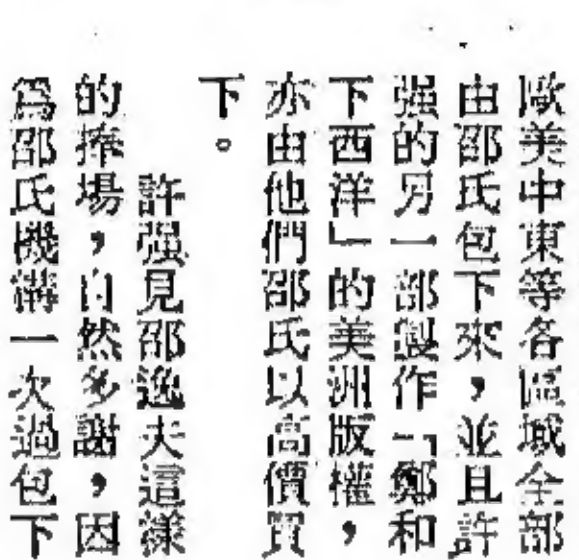 歐美中東等各區域全部
由邵氏包下來，並且許
强的另一部製作「鄭和
下西洋」的美洲版權，
亦由他們邵氏以高價買
下。
許强見邵逸夫這樣
的捧場，自然多謝，因
為邵氏機構一次過包下